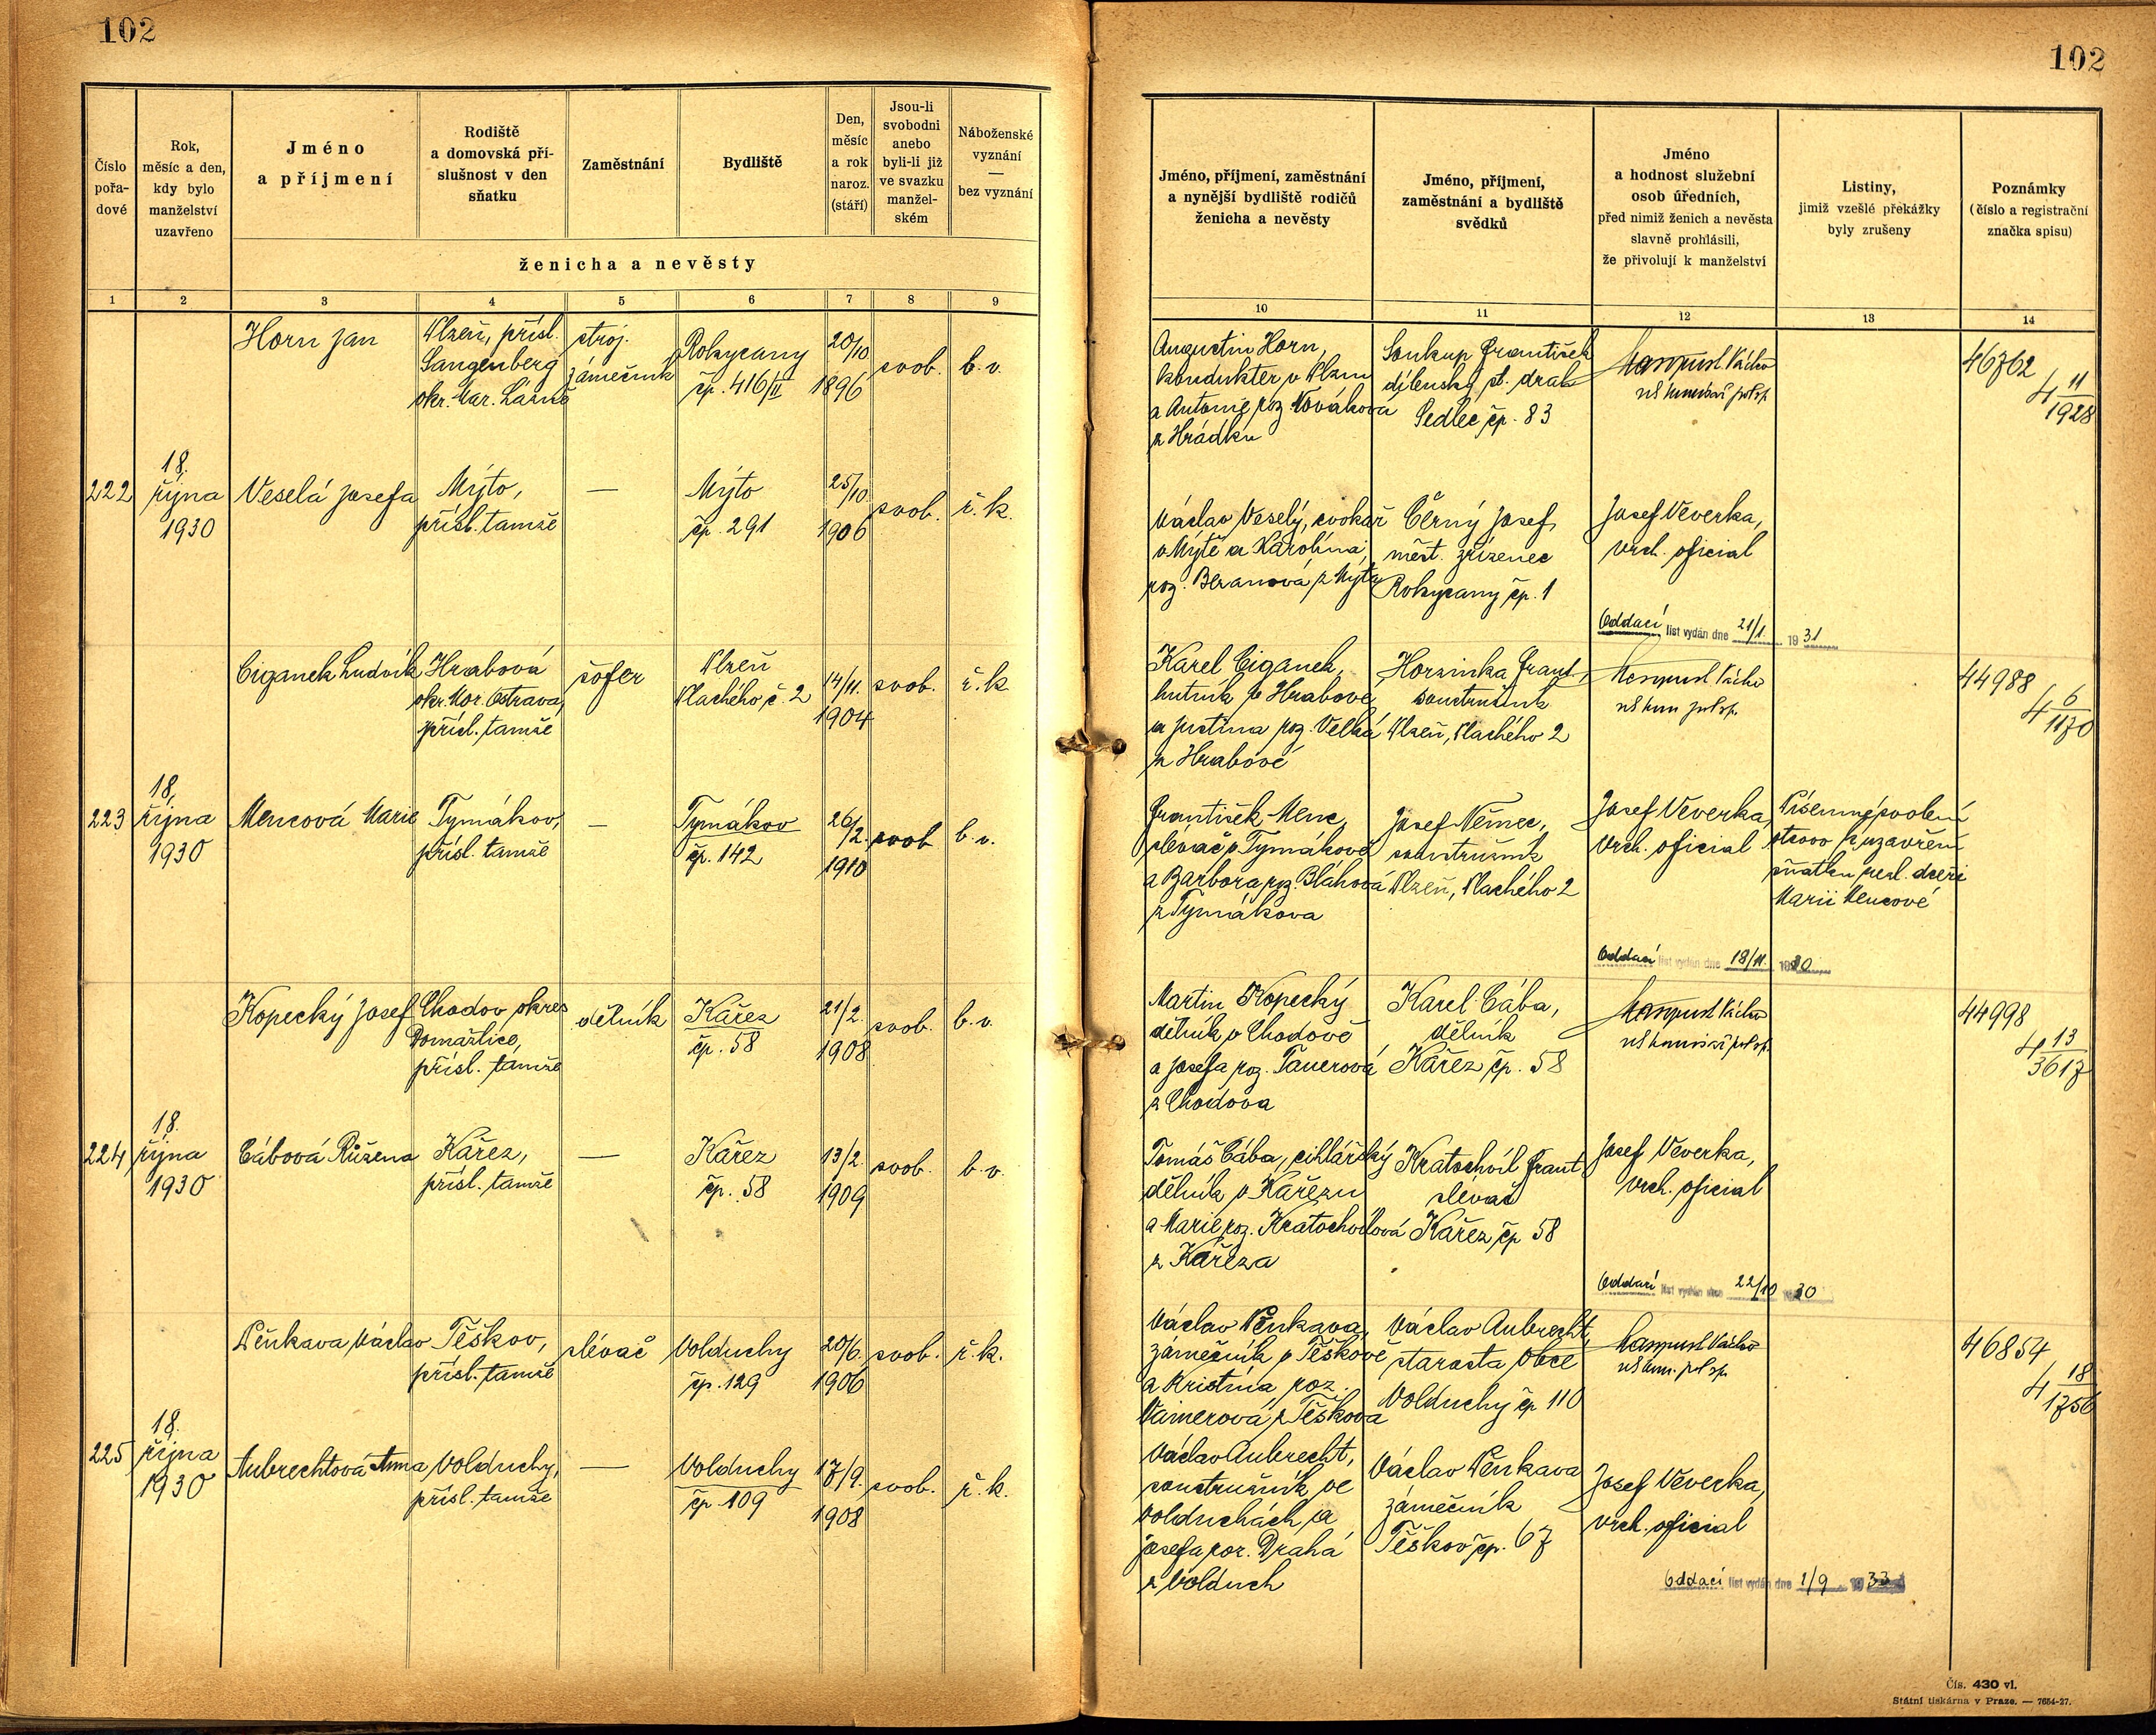 102
102
Číslo pořa- dové
Rok, měsíc a den, kdy bylo manželství uzavřeno
Jméno a příjmení
Rodiště a domovská pří- slušnost v den sňatku
Zaměstnání
Bydliště
Den, měsíc a rok naroz. (stáří)
Jsou-li svobodni anebo byli-li již ve svazku manžel- ském
Náboženské vyznání — bez vyznání
ženicha a nevěsty
1 2 3 4 5 6 7 8 9
Jméno, příjmení, zaměstnání a nynější bydliště rodičů ženicha a nevěsty
Jméno, příjmení, zaměstnání a bydliště svědků
Jméno a hodnost služební osob úředních, před nimiž ženich a nevěsta slavně prohlásili, že přivolují k manželství
Listiny, jimiž vzešlé překážky byly zrušeny
Poznámky (číslo a registrační značka spisu)
10 11 12 13 14
Horn Jan
Plzeň, přísl.
Sangenberg
okr. Mar. Lázně
stroj.
zámečník
Rokycany
čp. 416/II
20/10
1896
svob.
b. v.
Augustin Horn,
kondukter v Plzni
a Antonie roz. Nováková
z Hrádku
Soukup František
dílenský st. drah
Sedlec čp. 83
46762
4 11/1928
222
18.
října
1930
Veselá Josefa
Mýto,
přísl. tamže
—
Mýto
čp. 291
25/10
1906
svob.
ř. k.
Václav Veselý, cvokař
v Mýtě a Karolína,
roz. Beranová z Mýta
Černý Josef
měst. zřízenec
Rokycany čp. 1
Josef Veverka,
vrch. oficial
Oddací list vydán dne 21/1. 1931
Ciganek Ludvík
Hrabová
okr. Mor. Ostrava,
přísl. tamže
šofer
Plzeň
Plachého č. 2
14/11.
1904
svob.
ř. k.
Karel Ciganek,
hutník v Hrabové
a Justina roz. Velká
z Hrabové
Horsinka Frant.,
soustružník
Plzeň, Plachého 2
44988
4 6/1170
223
18.
října
1930
Mencová Marie
Tymákov,
přísl. tamže
—
Tymákov
čp. 142
26/2.
1910
svob
b. v.
František Menc,
slévač v Tymákově
a Barbora roz. Bláhová
z Tymákova
Josef Němec,
soustružník
Plzeň, Plachého 2
Josef Veverka,
vrch. oficial
Písemné svolení
otcovo k uzavření
sňatku nezl. dceři
Marii Mencové
Oddací list vydán dne 18/11. 1930
Kopecký Josef
Chodov okres
Domažlice,
přísl. tamže
dělník
Kařez
čp. 58
21/2.
1908
svob.
b. v.
Martin Kopecký
dělník v Chodově
a Josefa roz. Tauerová
z Chodova
Karel Cába,
dělník
Kařez čp. 58
44998
4 13/3617
224
18.
října
1930
Cábová Růžena
Kařez,
přísl. tamže
—
Kařez
čp. 58
13/2.
1909
svob.
b. v.
Tomáš Cába, cihlářský
dělník v Kařezu
a Marie roz. Kratochvílová
z Kařeza
Kratochvíl Frant.
slévač
Kařez čp 58
Josef Veverka,
vrch. oficial
Oddací list vydán dne 22/10 1930
Pěnkava Václav
Těškov,
přísl. tamže
slévač
Volduchy
čp. 129
20/6.
1906
svob.
ř. k.
Václav Pěnkava,
zámečník v Těškově
a Kristina roz.
Vainerová z Těškova
Václav Aubrecht,
starosta obce
Volduchy čp 110
46854
4 18/1756
225
18.
října
1930
Aubrechtová Anna
Volduchy,
přísl. tamže
—
Volduchy
čp 109
17/9.
1908
svob.
ř. k.
Václav Aubrecht,
soustružník ve
Volduchách a
Josefa roz. Drahá
z Volduch
Václav Pěnkava
zámečník
Těškov čp. 67
Josef Veverka,
vrch. oficial
Oddací list vydán dne 1/9 1933
Čís. 430 vl.
Státní tiskárna v Praze. — 7654-27.